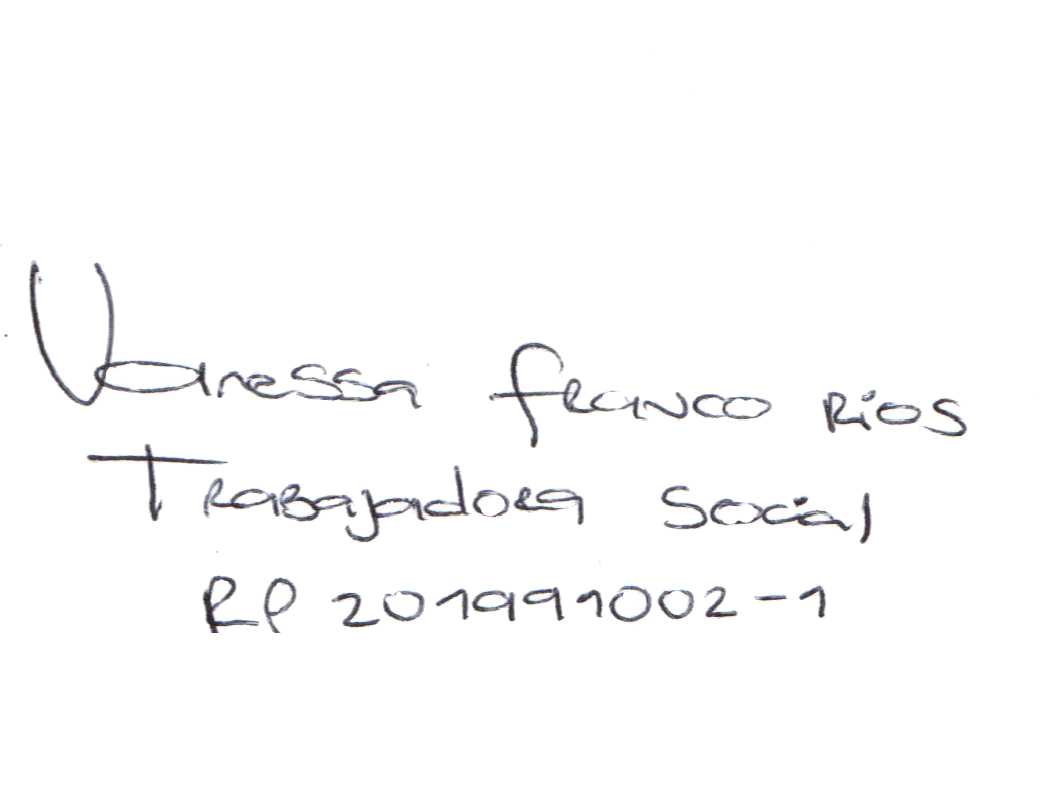 Vanessa Franco Rios
Trabajadora Social
RP 201991002-1